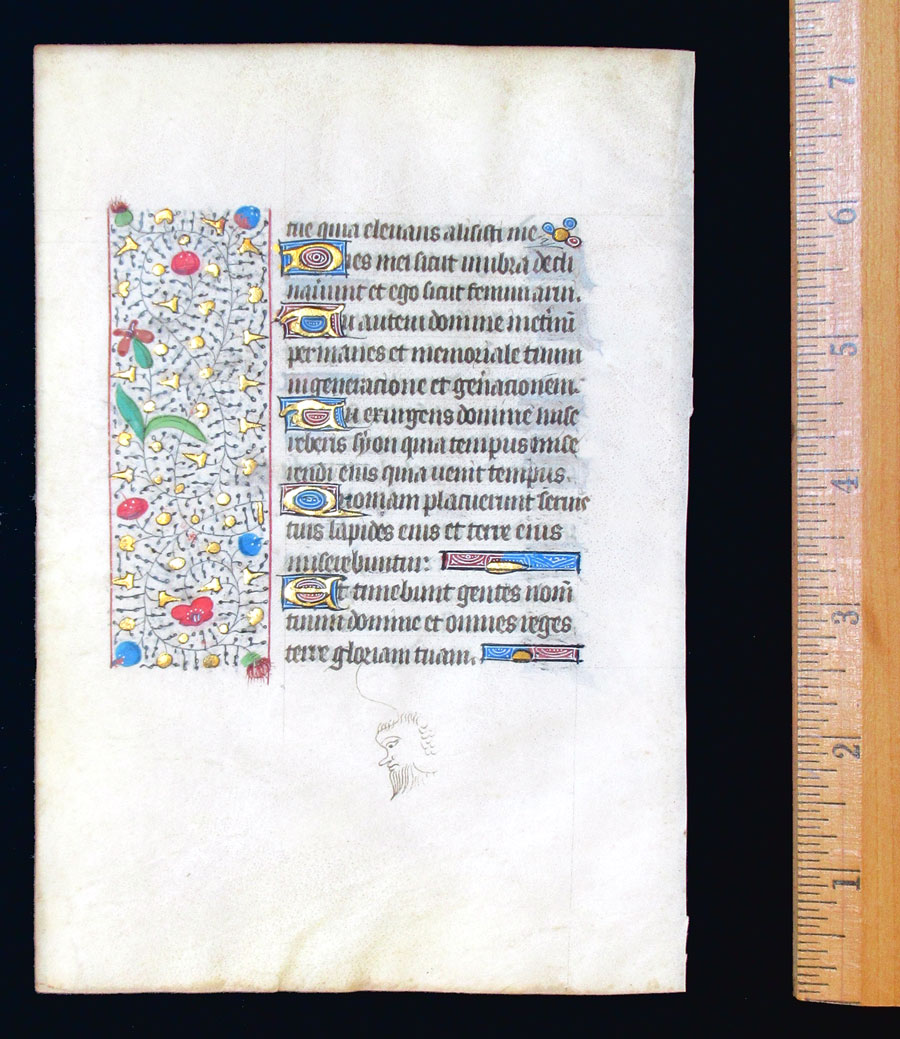 tue quia elevans alisisti me
Dies mei sicut umbra decli
naverunt et ego sicut fenum arui.
Tu autem domine in eternū
permanes et memoriale tuum
in generatione et gen̄ationem.
Tu exurgens domine mise
reberis syon quia tempus mise
rendi eius quia venit tempus.
Quoniam placuerunt servis
tuis lapides eius et terre eius
miserebuntur.
Et timebunt gentes nom̄
tuum domine et omnes reges
terre gloriam tuam.
7
6
5
4
3
2
1